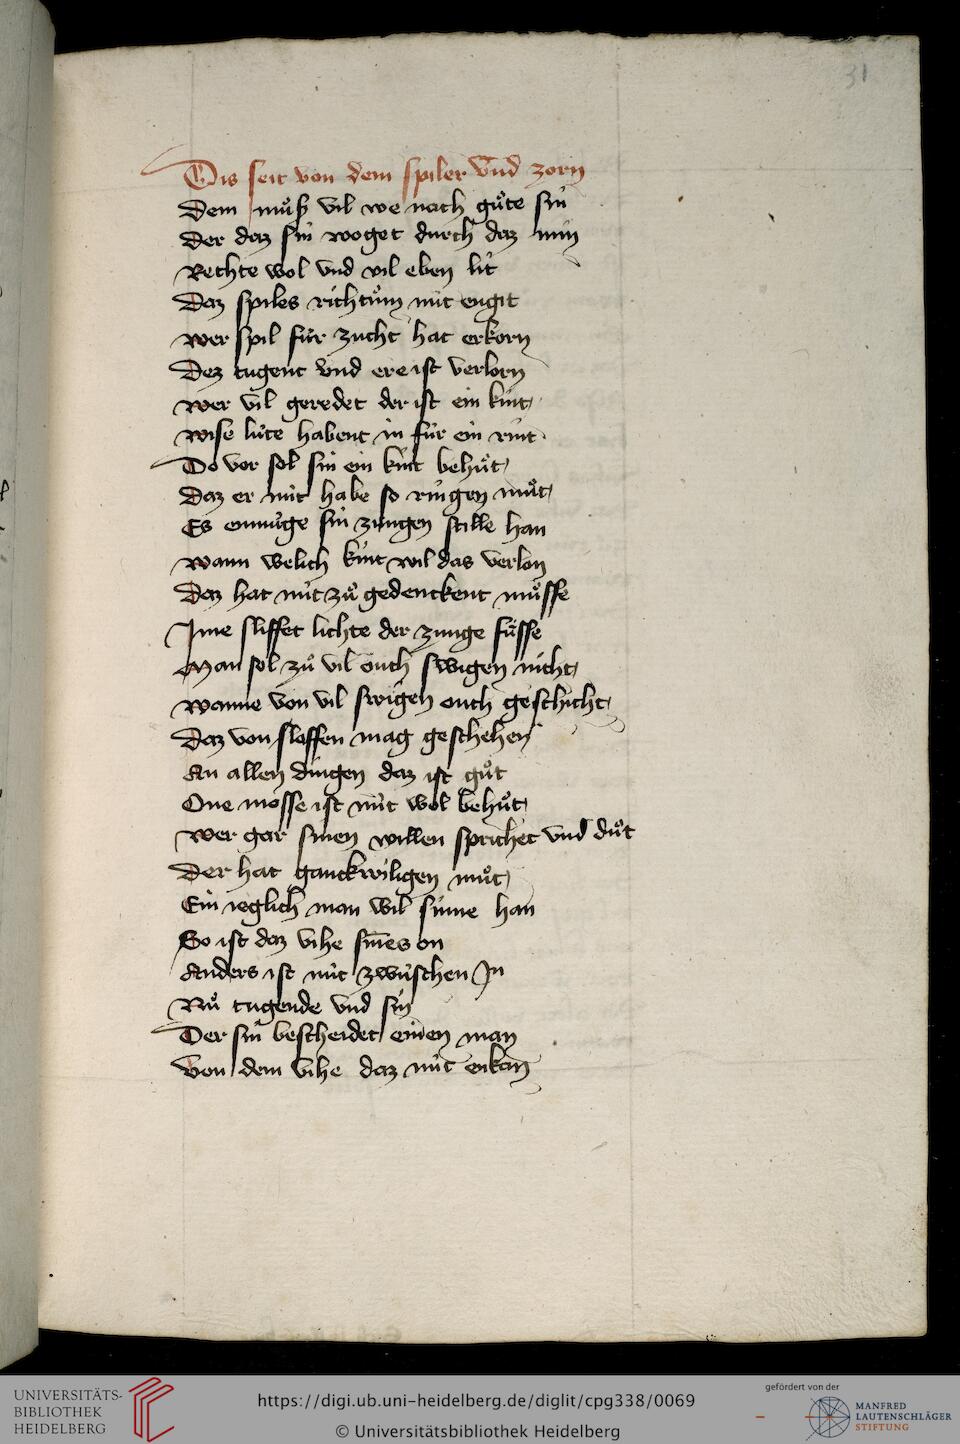 31
Dis seit von dem spiler vnd zorn
Dem muͦß vil we nach guͦte sin
Der daz sin woget durch daz min
Rechte wol vnd vil eben lit
Daz spiles richtuͦm nit engit
wer spil fuͤr zucht hat erkorn
Dez tugent vnd ere ist verlorn
wer vil geredet der ist ein kint
wise luͤte habent in fuͤr ein rint
Do vor sol sin ein kint behuͦt
Daz er nit habe so ringen muͦt
Es enmuͤge sin zungen stille han
wann welich kint wil das verlon
Daz hat nit zuͦ gedenckent muͦsse
Ime sliffet lichte der zunge fuͤsse
Man sol zuͦ vil ouch swigen nicht
wanne von vil swigen ouch geschicht
Daz von sloffen mag geschehen
An allen dingen daz ist guͦt
One mosse ist nit wol behuͦt
wer gar sinen willen sprichet vnd duͦt
Der hat ganckwiligen muͦt
Ein ieglich man wil sinne han
So ist daz vihe sines on
Anders ist nit zwuͤschen In
Nuͦ tugende vnd sin
Der sin bescheidet einen man
von dem vihe daz nit enkan
UNIVERSITÄTS-
BIBLIOTHEK
HEIDELBERG
https://digi.ub.uni-heidelberg.de/diglit/cpg338/0069
© Universitätsbibliothek Heidelberg
gefördert von der
MANFRED
LAUTENSCHLÄGER
STIFTUNG